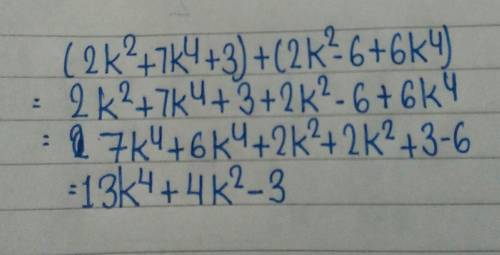 (2k²+7k⁴+3)+(2k²-6+6k⁴)
= 2k²+7k⁴+3+2k²-6+6k⁴
= 7k⁴+6k⁴+2k²+2k²+3-6
=13k⁴+4k²-3